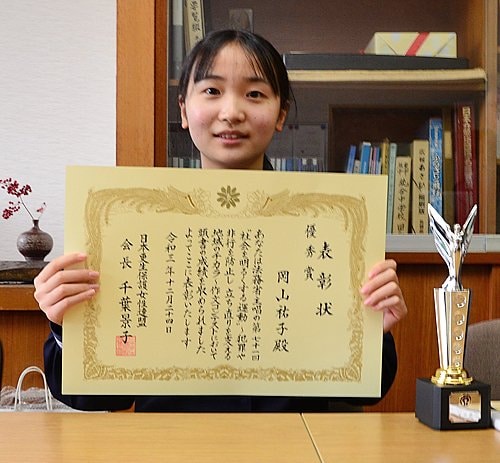 表彰状
優秀賞
岡山祐子殿
あなたは法務省主唱の第七十一回
"社会を明るくする運動"～犯罪や
非行を防止し立ち直りを支える
地域のチカラ～作文コンテストにおいて
頭書の成績を収められました
よってここに表彰いたします
令和三年十二月二十四日
日本更生保護女性連盟
会長 千葉景子